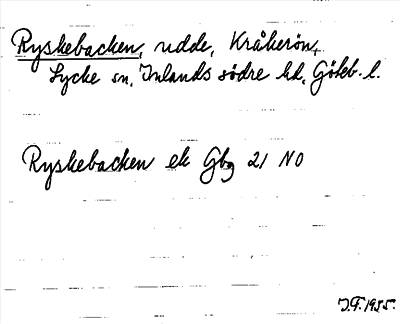 Ryskebacken, udde, Kråkerön,
Lycke sn, Inlands södre hd, Göteb. l.
Ryskebacken ek Gbg 21 NO
J.F. 1955.